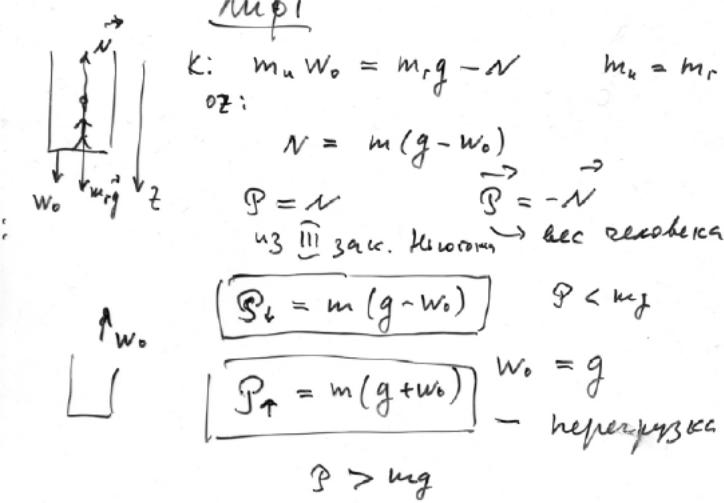 Пир1
N⃗
К: mᵤ W₀ = mᵣ g − N mᵤ = mᵣ
oz:
N = m(g − w₀)
W₀ mᵣg⃗ z
P = N P⃗ = −N⃗
из III зак. Ньютона → вес человека
P↓ = m(g − w₀) P < mg
W₀
P↑ = m(g + w₀) W₀ = g
— перегрузка
P > mg